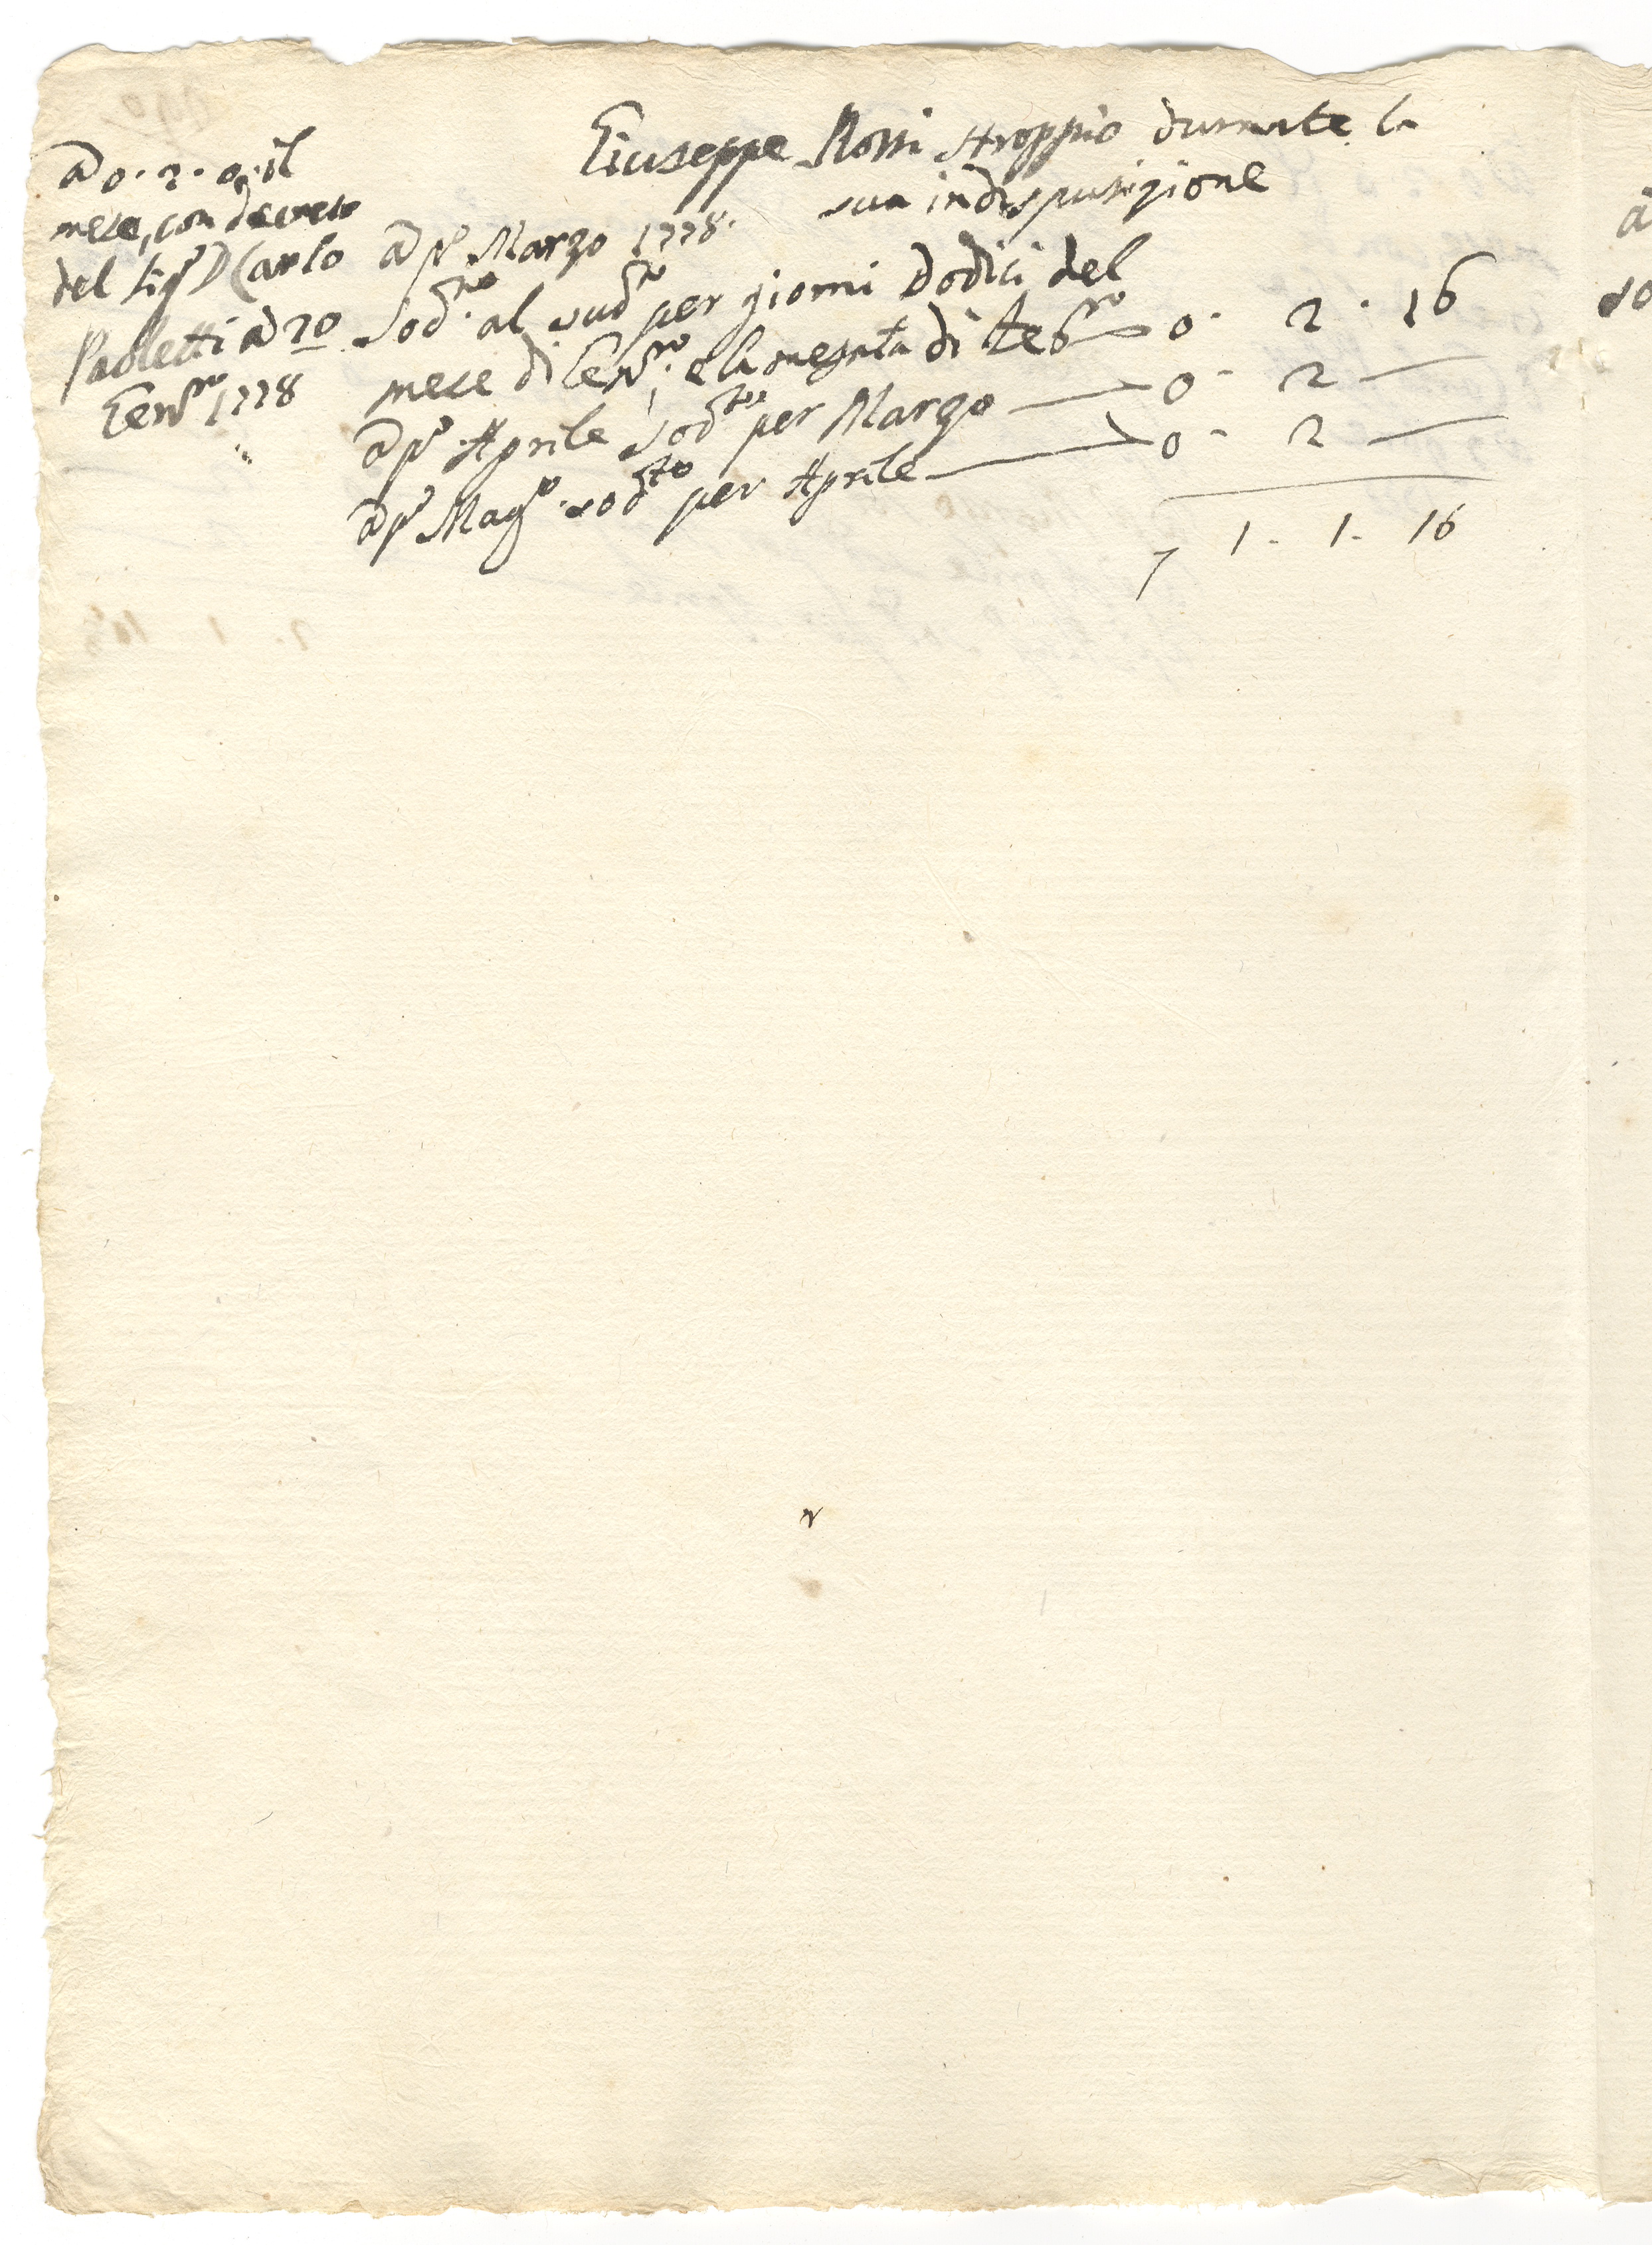 Giuseppe Rossi stroppio durante la
sua indisposizione
a 0. 2. 0. il
mese, con decreto
del Sigr D Carlo
Paoletti a 20
Genro 1778
a pmo Marzo 1778.
Sodto al sudto per giorni dodici del
mese di Genro, e la mesata di Febro 0. 2. 16
a pmo Aprile sodto per Marzo 0. 2
a pmo Mago sodto per Aprile 0. 2
1. 1. 16